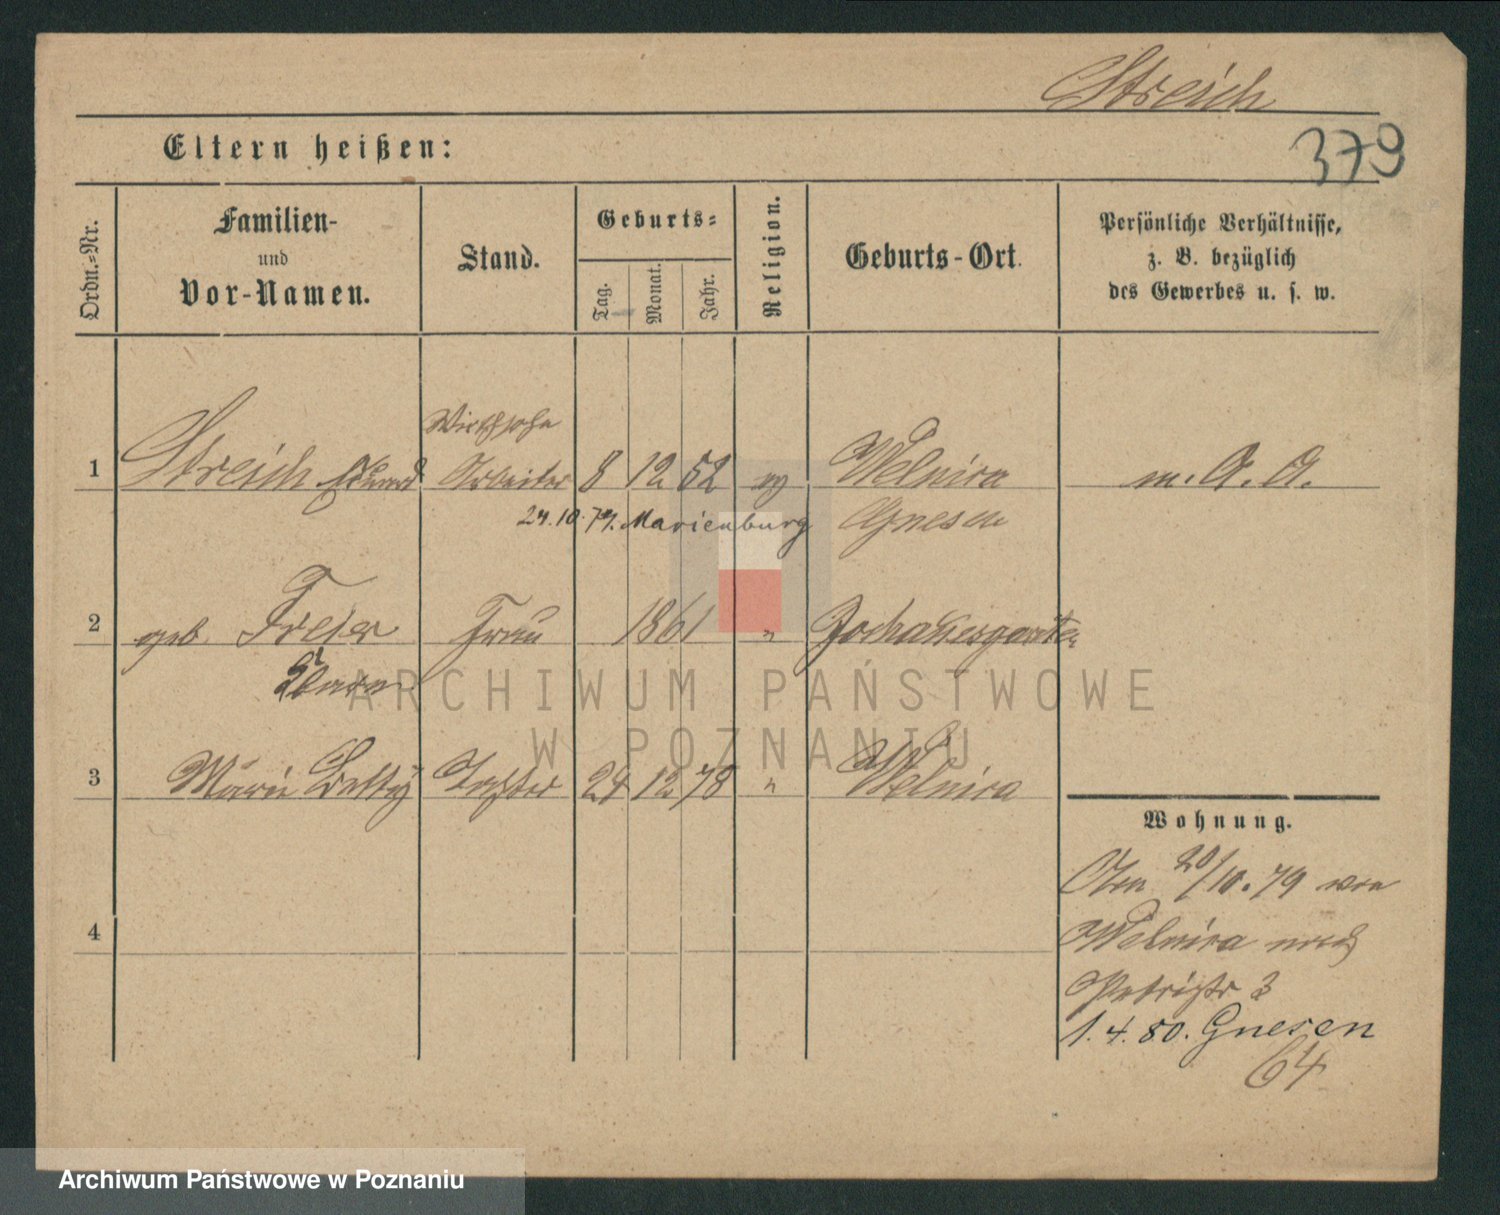 Streich
379
Eltern heißen:
Ordn.-Nr.
Familien-
und
Vor-Namen.
Stand.
Geburts-
Tag.
Monat.
Jahr.
Religion.
Geburts-Ort.
Persönliche Verhältnisse,
z. B. bezüglich
des Gewerbes u. s. w.
Wirthssohn
1 Streich Eduard Arbeiter 8 12 52 ev Welnica m. A. A.
24.10.79. Marienburg Gnesen
2 geb. Freier Frau 1861 " 
3 Marie Tochter 24 12 78 " Welnica
4
Wohnung.
Den 20/10.79 von
Welnica nach
3
1.4.80. Gnesen
64
ARCHIWUM PAŃSTWOWE
W POZNANIU
Archiwum Państwowe w Poznaniu